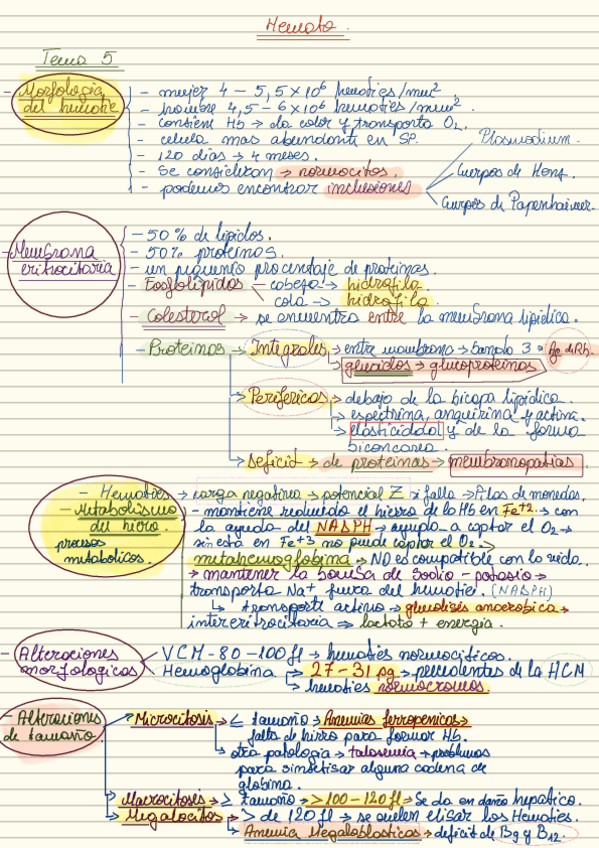 Hemato.
Tema 5
- Morfologia del hematie
- mujer 4 - 5,5 x 10⁶ hematies/mm².
- hombre 4,5 - 6 x 10⁶ hematies/mm².
- contiene Hb → da color y transporta O₂.
- celula mas abundante en SP.
- 120 dias → 4 meses.
- Se consideran → normocitos.
- podemos encontrar inclusiones
Plasmodium.
Cuerpos de Heinz.
Cuerpos de Papenheimer.
- Membrana eritrocitaria
- 50% de lipidos.
- 50% proteinas.
- un pequeño procentaje de proteinas.
- Fosfolipidos - cabeza → hidrofila
cola → hidrofila.
- Colesterol → se encuentra entre la membrana lipidica.
- Proteinas → Integrales → entre membrana → banda 3
glucidos → glucoproteinas
→ Perifericas → debajo de la bicapa lipidica.
→ espectrina, anquirina y actina.
→ elasticidad y da la forma
biconcava.
→ Deficit → de proteinas → membranopatias.
- Hematies → carga negativa → potencial Z si falla → Pilas de monedas.
- Metabolismo del hierro.
procesos metabolicos.
- mantiene reducido el hierro de la Hb en Fe⁺². → con
la ayuda del NADPH → ayuda a captar el O₂ →
si esta en Fe⁺³ no puede captar el O₂.
metahemoglobina → NO es compatible con la vida.
→ mantener la bomba de sodio - potasio →
transporta Na⁺ fuera del hematie. (NADPH)
↳ transporte activo → glucolisis anaerobica →
intereritrocitaria → lactato + energia.
- Alteraciones morfologicas
VCM - 80 - 100 fl → hematies normociticos.
Hemoglobina → 27 - 31 pg → procedentes de la HCM
→ hematies normocromos.
- Alteraciones de tamaño.
Microcitosis → ≤ tamaño → Anemias ferropenicas →
falta de hierro para formar Hb.
→ otra patologia → talasemia → problemas
para sintetisar alguna cadena de
globina.
Macrocitosis → ≥ tamaño → > 100 - 120 fl → Se da en daño hepatico.
Megalocitos → > de 120 fl → se suelen lisar los Hematies.
→ Anemia Megaloblastica → deficit de B9 y B12.